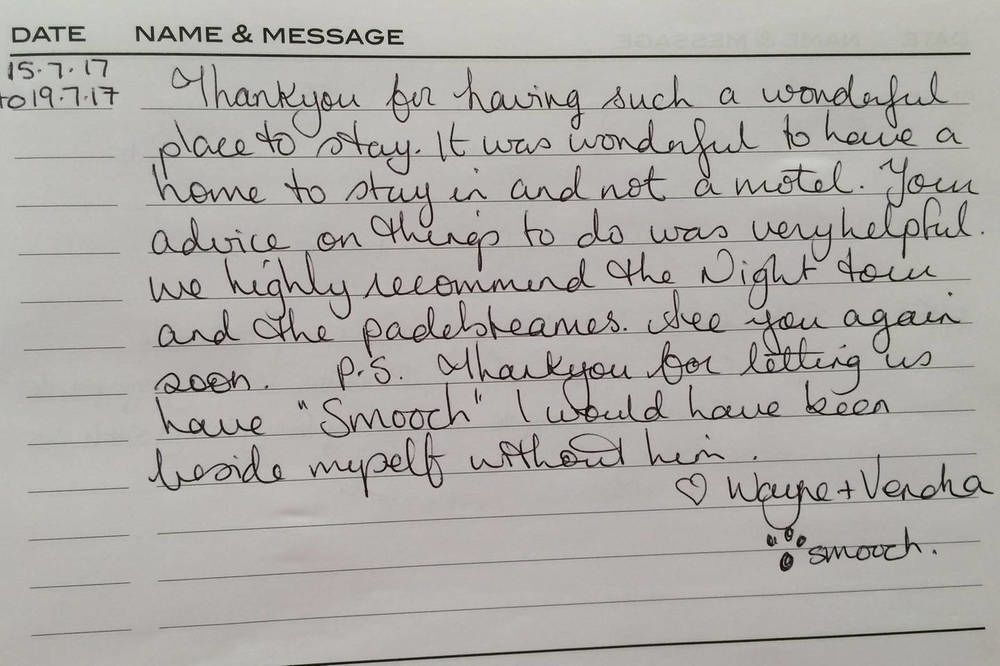 DATE NAME & MESSAGE
15.7.17
to 19.7.17 Thankyou for having such a wonderful
place to stay. It was wonderful to have a
home to stay in and not a motel. Your
advice on things to do was very helpful.
we highly recommend the Night tour
and the padelsteames. See you again
soon. P.S. Thankyou for letting us
have "Smooch" I would have been
beside myself without him.
♡ Wayne + Vendha
smooch.